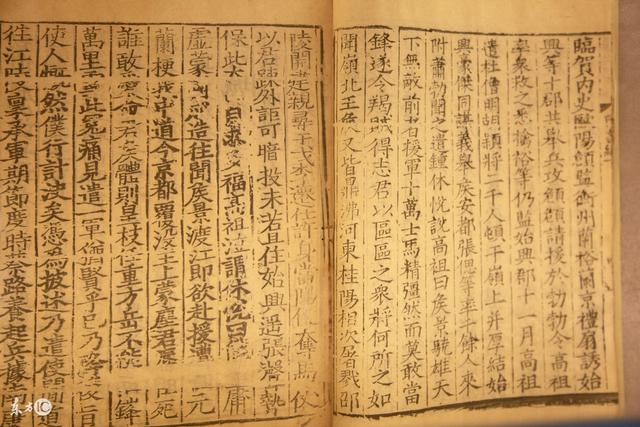 臨賀內史歐陽頠監衡州蘭裕蘭京禮扇誘始
興等十郡共舉兵攻頠頠請援於勃勃令高祖
率衆救之悉擒裕等仍監始興郡十一月高祖
遣杜僧明胡穎將二千人頓于嶺上并厚結始
興豪傑同謀義舉侯安都張偲等率千餘人來
附蕭勃聞之遣鍾休悅說高祖曰侯景驍雄天
下無敵前者援軍十萬士馬精彊然而莫敢當
鋒遂令羯賊得志君以區區之衆將何所之如
聞嶺北王侯又皆鼎沸河東桂陽相次屠戮邵
陵開建親尋干戈李遷仕許身當陽便奪馬仗
以君疎外詎可暗投未若且住始興遙張聲勢
保此太自求多福高祖泣謂休悅曰庸
虛蒙國成造往聞侯景渡江即欲赴援遭元
蘭梗我中道今京都覆沒主上蒙塵君辱死
誰敢愛命君侯體則皇枝任重方岳不能鋒
萬里雪此冤痛見遣一軍猶賢乎已乃降後旨
使人慨然僕行計決矣憑爲披述乃遣使間道
往江陵稟承軍期節度時蔡路養起兵據南